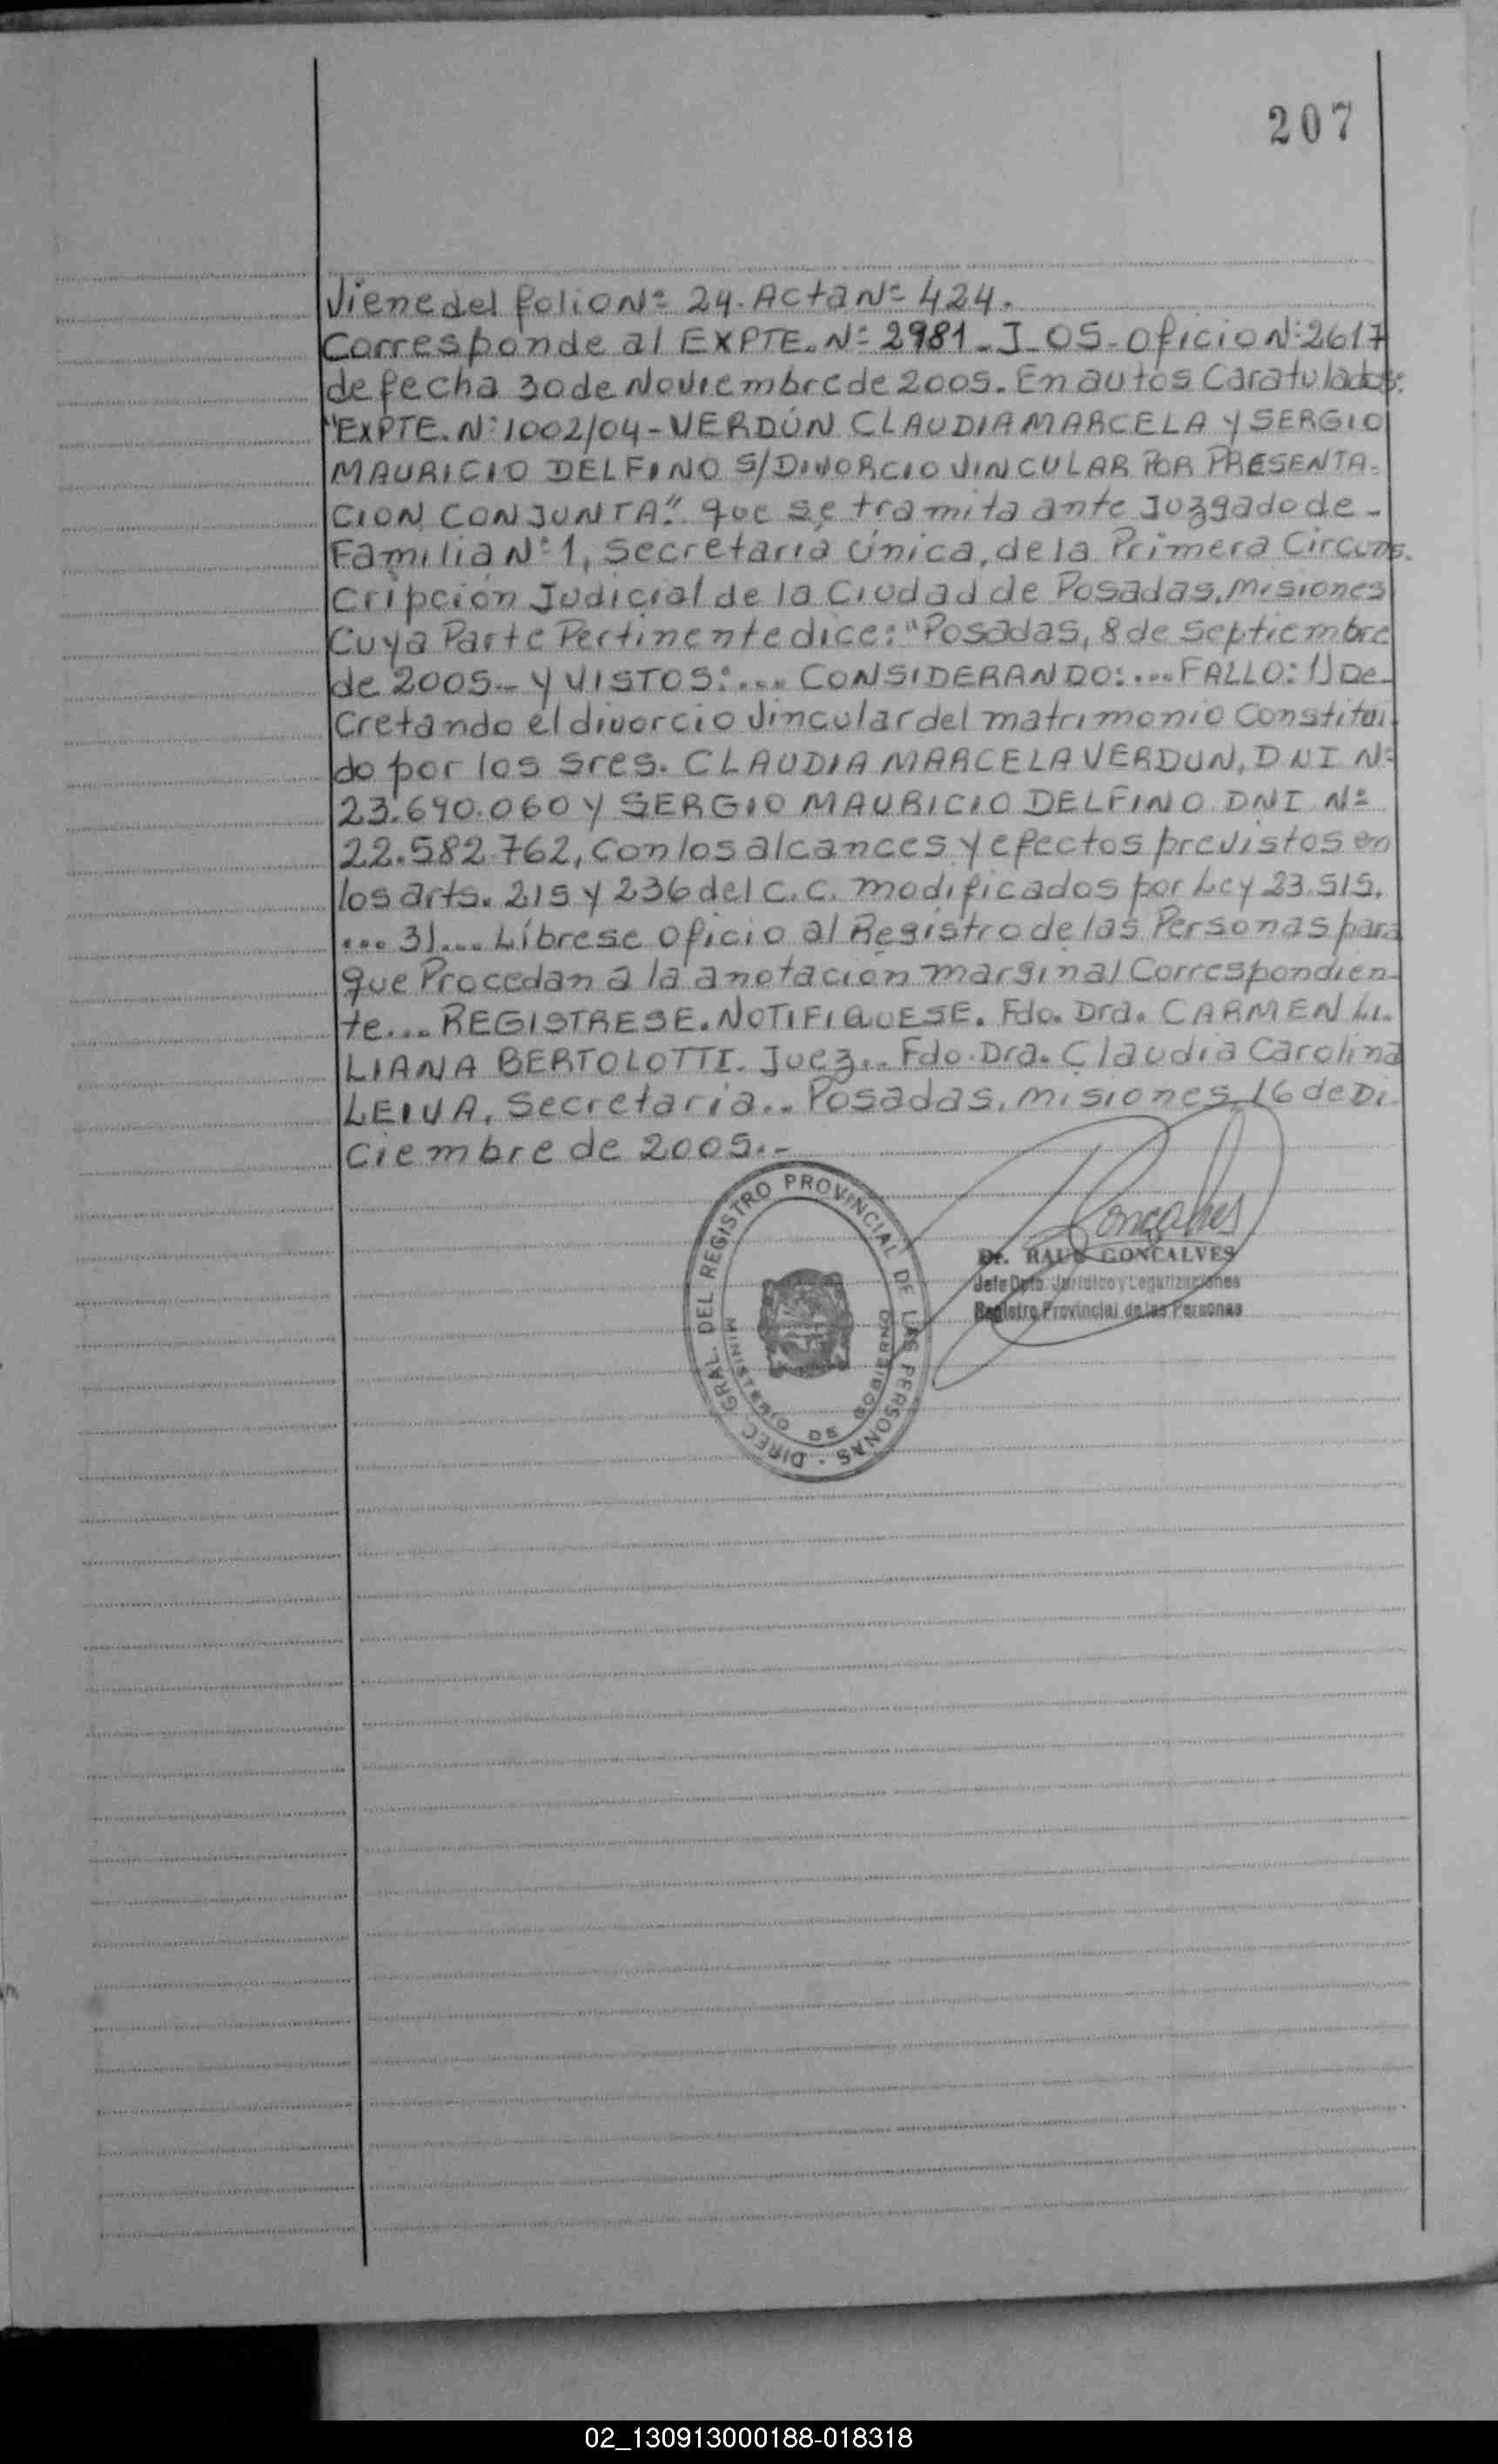 207
Viene del folio Nº 24. Acta Nº 424.
Corresponde al EXPTE. Nº 2981-J-05-Oficio Nº 2617
de fecha 30 de Noviembre de 2005. En autos Caratulados:
"EXPTE. Nº 1002/04 - VERDÚN CLAUDIA MARCELA Y SERGIO
MAURICIO DELFINO S/DIVORCIO VINCULAR POR PRESENTA-
CION CONJUNTA". que se tramita ante Juzgado de -
Familia Nº 1, Secretaria Única, de la Primera Circuns-
cripción Judicial de la Ciudad de Posadas, Misiones
Cuya Parte Pertinente dice: "Posadas, 8 de Septiembre
de 2005.- Y VISTOS:... CONSIDERANDO:... FALLO: 1) De-
cretando el divorcio vincular del matrimonio Constitui-
do por los Sres. CLAUDIA MARCELA VERDUN, DNI Nº
23.690.060 Y SERGIO MAURICIO DELFINO DNI Nº
22.582.762, con los alcances y efectos previstos en
los arts. 215 y 236 del C.C. modificados por Ley 23.515.
... 3)... Líbrese oficio al Registro de las Personas para
que Procedan a la anotación marginal Correspondien-
te... REGISTRESE. NOTIFIQUESE. Fdo. Dra. CARMEN LI-
LIANA BERTOLOTTI. Juez.. Fdo. Dra. Claudia Carolina
LEIVA, Secretaria.. Posadas, Misiones, 16 de Di-
ciembre de 2005.-
DIREC. GRAL. DEL REGISTRO PROVINCIAL DE LAS PERSONAS
MINISTERIO DE GOBIERNO
Goncalves
Dr. RAUL GONCALVES
Jefe Dpto. Jurídico y Legalizaciones
Registro Provincial de las Personas
02_130913000188-018318